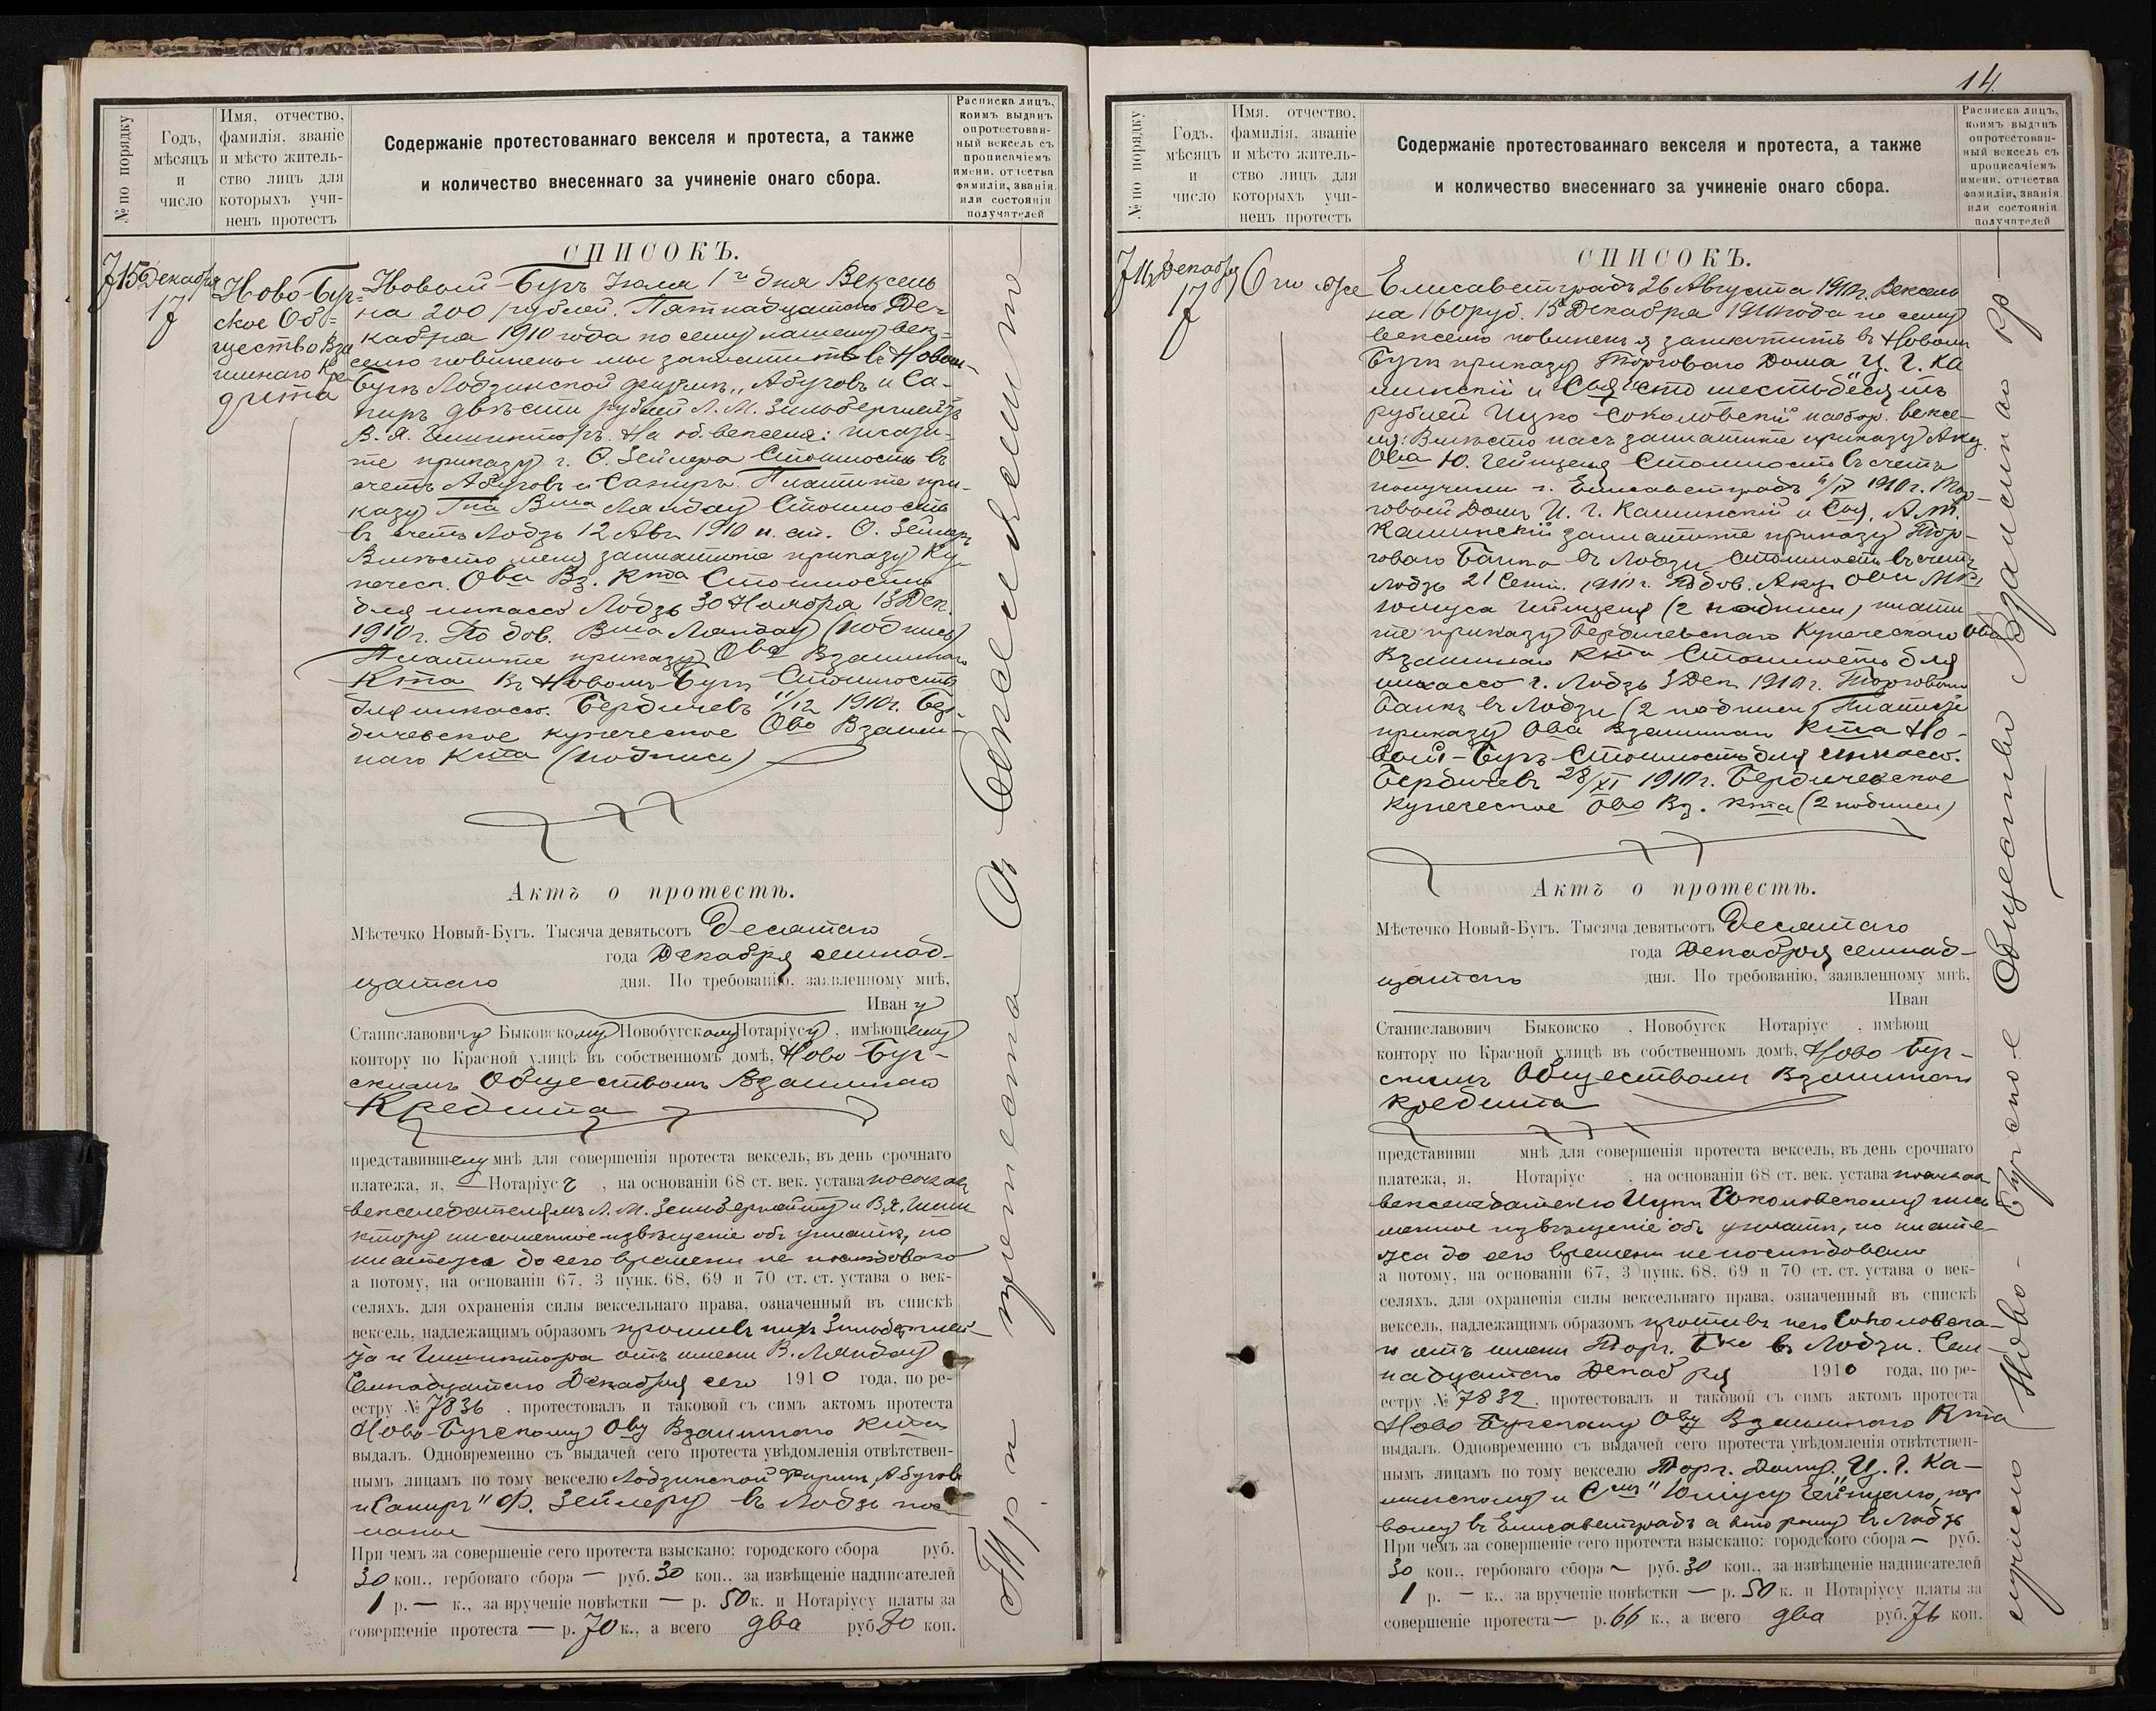 № по порядку
Годъ, мѣсяцъ и число
Имя, отчество, фамилія, званіе и мѣсто жительство лицъ для которыхъ учиненъ протестъ
Содержаніе протестованнаго векселя и протеста, а также
и количество внесеннаго за учиненіе онаго сбора.
Расписка лицъ, коимъ выданъ опротестованный вексель съ прописаніемъ имени, отчества фамиліи, званія или состоянія получателей
СПИСОКЪ.
715
Декабря
17
Ново-Буг-
ское Об-
щество Вза
имнаго Кре
дита
Новый-Бугъ Іюля 1го дня Вексель
на 200 рублей. Пятнадцатаго Де-
кабря 1910 года по сему нашему век-
селю повинны мы заплатить въ Новом-
Бугѣ Лодзинской фирмѣ „Абуговъ и Са-
пиръ двѣсти рублей Л. М.
В. Я. На об. векселя:
те приказу г. О. Зейлера Стоимость въ
счетъ Абуговъ и Сапиръ. Платите при-
казу Вма Ландау Стоимость
въ счетъ Лодзь 12 Авг. 1910 н. ст. О. Зейлеръ
Вмѣсто меня заплатите приказу Ку-
печеск. Ова Вз. Кта Стоимость
для инкассо Лодзь 30 Ноября 13 Дек.
1910 г. По дов. Вма Ландау (подпись)
Платите приказу Ова Взаимнаго
Кта въ Новомъ-Бугѣ Стоимость
для инкассо. Бердичевъ 11/12 1910г. Бер
дичевское купеческое Ово Взаим-
наго Кта (подпись)
Актъ о протестѣ.
Мѣстечко Новый-Бугъ. Тысяча девятьсотъ Десятаго
года Декабря семнад-
цатаго дня. По требованію, заявленному мнѣ,
Ивану
Станиславовичу Быковскому Новобугскому Нотаріусу, имѣющему
контору по Красной улицѣ въ собственномъ домѣ, Ново-Буг-
скимъ Обществомъ Взаимнаго
Кредита
представившему мнѣ для совершенія протеста вексель, въ день срочнаго
платежа, я, Нотаріусъ, на основаніи 68 ст. век. устава послалъ
векселедателямъ Л. М. и В. Я.
письменное извѣщеніе объ уплатѣ, но
платежа до сего времени не послѣдовало
а потому, на основаніи 67, 3 пунк. 68, 69 и 70 ст. ст. устава о век-
селяхъ, для охраненія силы вексельнаго права, означенный въ спискѣ
вексель, надлежащимъ образомъ противъ нихъ
и отъ имени В. Ландау
Семнадцатаго Декабря сего 1910 года, по ре-
естру № 7836, протестовалъ и таковой съ симъ актомъ протеста
Ново-Бугскому Ову Взаимнаго Кта
выдалъ. Одновременно съ выдачей сего протеста увѣдомленія отвѣтствен-
нымъ лицамъ по тому векселю Лодзинской Фирмѣ „Абуговъ
и Сапиръ" О. Зейлеру въ Лодзь пос
ланы
При чемъ за совершеніе сего протеста взыскано: городского сбора руб.
30 коп., гербоваго сбора — руб. 30 коп., за извѣщеніе надписателей
1 р. — к., за врученіе повѣстки — р. 50 к. и Нотаріусу платы за
совершеніе протеста — р. 70 к., а всего два руб. 80 коп.
14.
№ по порядку
Годъ, мѣсяцъ и число
Имя, отчество, фамилія, званіе и мѣсто жительство лицъ для которыхъ учиненъ протестъ
Содержаніе протестованнаго векселя и протеста, а также
и количество внесеннаго за учиненіе онаго сбора.
Расписка лицъ, коимъ выданъ опротестованный вексель съ прописаніемъ имени, отчества фамиліи, званія или состоянія получателей
СПИСОКЪ.
716
Декабря
17
Оно же
Елисаветградъ 26 Августа 1910г. Вексель
на 160 руб. 15 Декабря 1910 года по сему
векселю повиненъ я заплатить въ Новомъ
Бугѣ приказу Торговаго Дома „И. Г. Ка
минскій и Сья" сто шестьдесятъ
рублей Ицко Соколовскій на обор. вексе-
ля: Вмѣсто насъ заплатите приказу Акц.
Ова Ю. Гейнцеля Стоимость въ счетъ
получили г. Елисаветградъ 1910г. Тор-
говый Домъ И. Г. Каминскій и Сья, А. М.
Каминскій заплатите приказу Тор-
говаго Банка въ Лодзи Стоимость въ счетъ
Лодзь 21 Сент. 1910г. По дов. Акц. Ова
Юліуса Гейнцеля (2 подписи) плати
те приказу Бердичевскаго Купеческаго Ова
Взаимнаго Кта Стоимость для
инкассо г. Лодзь 3 Дек. 1910г. Торговый
Банкъ въ Лодзи (2 подписи) Платите
приказу Ова Взаимнаго Кта Но-
вый-Бугъ Стоимость для инкассо.
Бердичевъ 28/XI 1910г. Бердичевское
купеческое Ово Вз. Кта (2 подписи)
Актъ о протестѣ.
Мѣстечко Новый-Бугъ. Тысяча девятьсотъ Десятаго
года Декабря семнад-
цатаго дня. По требованію, заявленному мнѣ,
Иван
Станиславович Быковско , Новобугск Нотаріус , имѣющ
контору по Красной улицѣ въ собственномъ домѣ, Ново Буг-
скимъ Обществомъ Взаимнаго
кредита
представивш мнѣ для совершенія протеста вексель, въ день срочнаго
платежа, я, Нотаріус , на основаніи 68 ст. век. устава послалъ
векселедателю Ицкѣ Соколовскому пись
менное извѣщеніе объ уплатѣ, но плате-
жа до сего времени не послѣдовало
а потому, на основаніи 67, 3 пунк. 68, 69 и 70 ст. ст. устава о век-
селяхъ, для охраненія силы вексельнаго права, означенный въ спискѣ
вексель, надлежащимъ образомъ противъ него Соколовска-
и отъ имени Торг. Бка въ Лодзи. Сем
надцатаго Декабря 1910 года, по ре-
естру № 7832, протестовалъ и таковой съ симъ актомъ протеста
Ново Бугскому Ову Взаимнаго Кта
выдалъ. Одновременно съ выдачей сего протеста увѣдомленія отвѣтствен-
нымъ лицамъ по тому векселю Торг. Дому „И. Г. Ка-
минскому и Сья" Юліусу Гейнцелю, пер
вому въ Елисаветградъ а второму въ Лодзь
При чемъ за совершеніе сего протеста взыскано: городского сбора — руб.
30 коп., гербоваго сбора — руб. 30 коп., за извѣщеніе надписателей
1 р. — к., за врученіе повѣстки — р. 50 к. и Нотаріусу платы за
совершеніе протеста — р. 66 к., а всего два руб. 76 коп.
Три протеста съ векселями
получило Ново-Бугское Общество Взаимнаго Кр